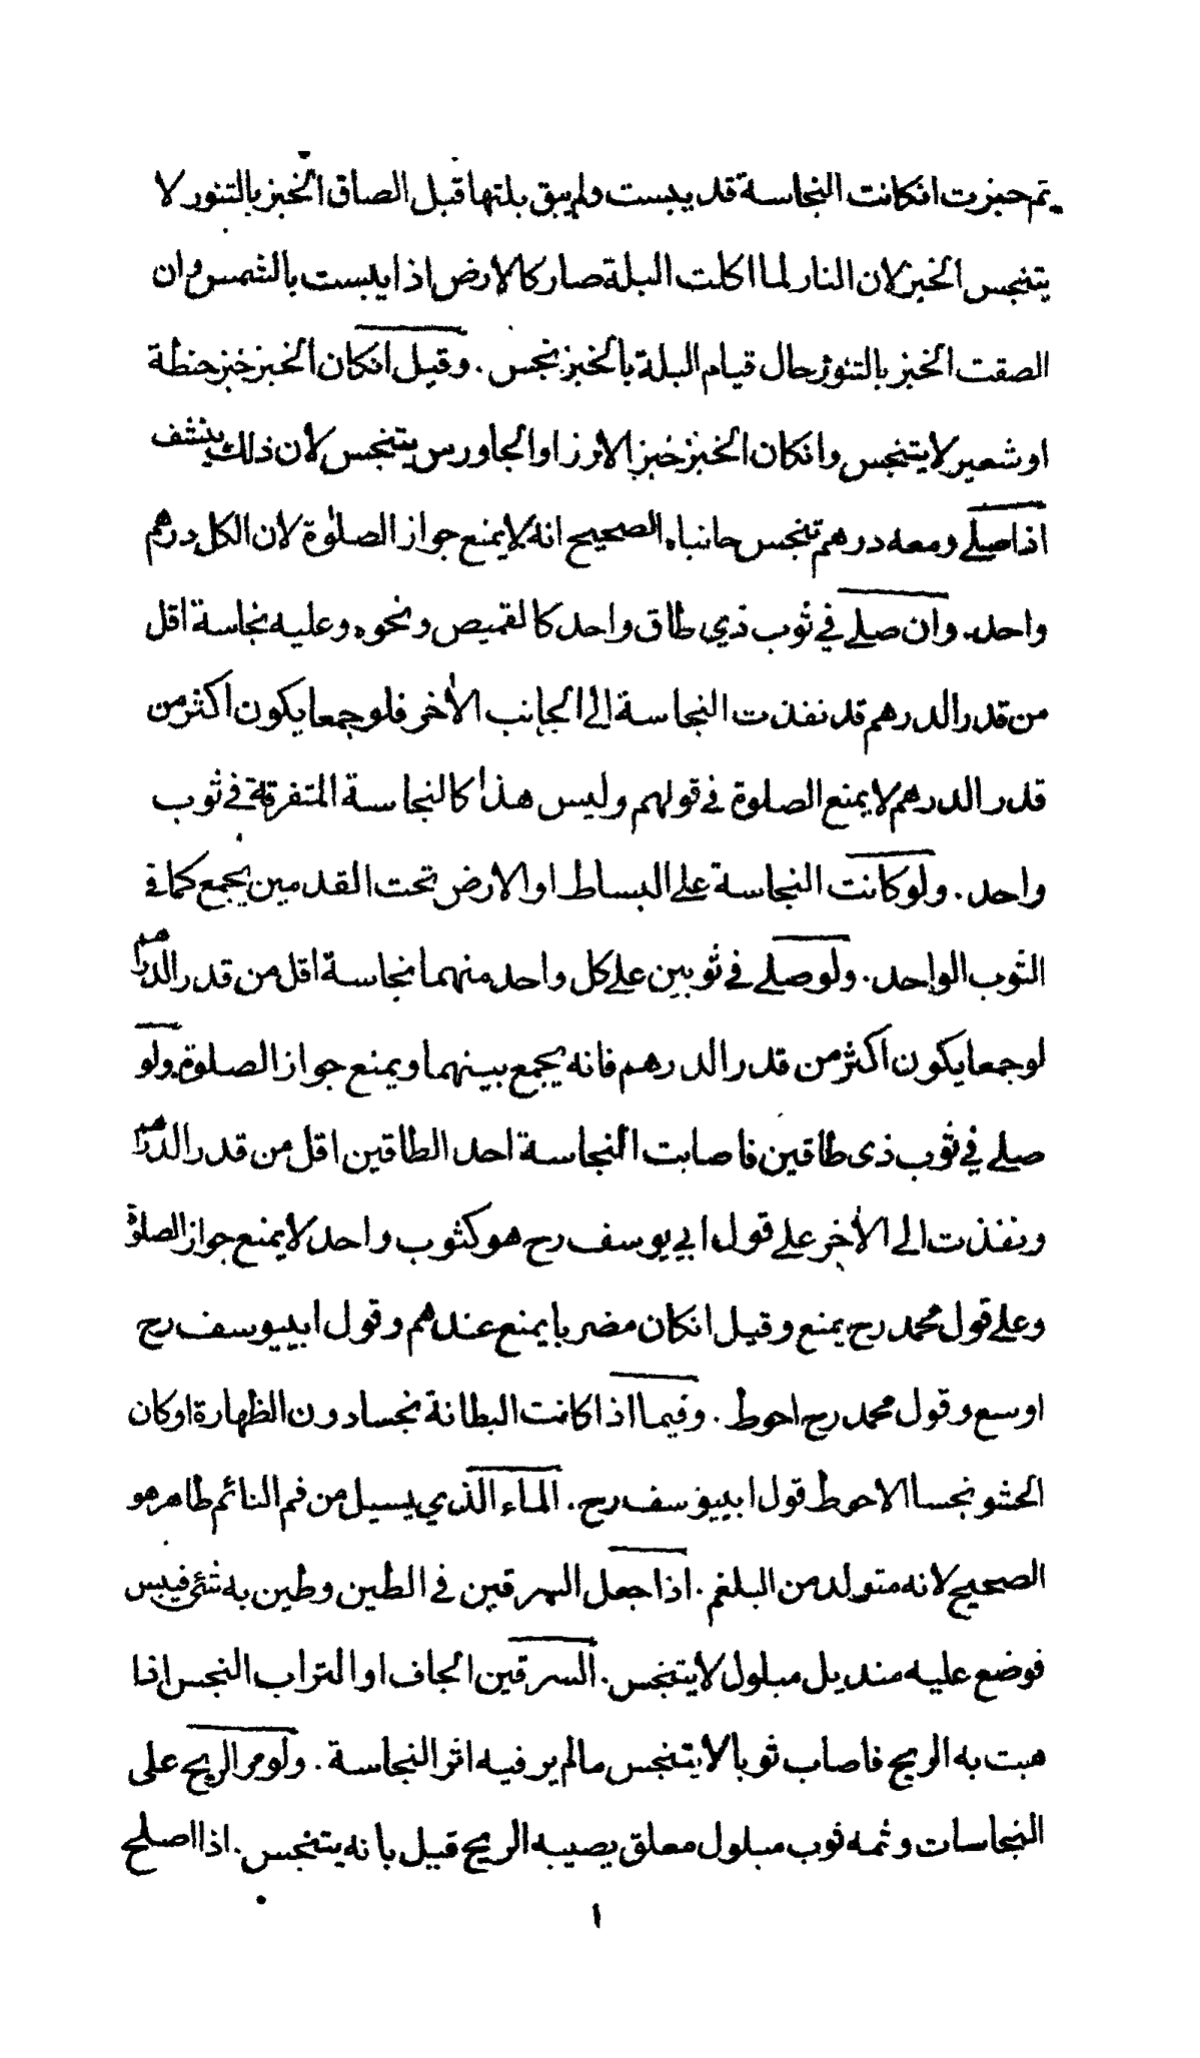 ثم خبزت انكانت النجاسة قد يبست ولم يبق بلتها قبل الصاق الخبز بالتنور لا
يتنجس الخبز لان النار لما اكلت البلة صار كالارض اذا يبست بالشمس وان
الصقت الخبز بالتنور حال قيام البلة بالخبز نجس . وقيل انكان الخبز خبز حنطة
او شعير لا يتنجس وانكان الخبز خبز الارز او الجاورس يتنجس لأن ذلك ينشف
اذا صلے ومعه درهم تنجس جانباه الصحيح انه لا يمنع جواز الصلوٰة لان الكل درهم
واحد. وان صلے في ثوب ذي طاق واحد كالقميص ونحوه وعليه نجاسة اقل
من قدر الدرهم قد نفذت النجاسة الى الجانب الاٰخر فلو جمعا يكون اكثر من
قدر الدرهم لا يمنع الصلوة في قولهم وليس هذا كالنجاسة المتفرقة في ثوب
واحد . ولو كانت النجاسة علے البساط او الارض تحت القدمين يجمع كما في
الثوب الواحد . ولو صلے في ثوبين علے كل واحد منهما نجاسة اقل من قدر الدراهم
لو جمعا يكون اكثر من قدر الدرهم فانه يجمع بينهما ويمنع جواز الصلوة ولو
صلے في ثوب ذى طاقين فاصابت النجاسة احد الطاقين اقل من قدر الدراهم
ونفذت الى الاٰخر علے قول ابي يوسف رح هو كثوب واحد لا يمنع جواز الصلوة
وعلے قول محمد رح يمنع وقيل انكان مضربا يمنع عندهم وقول ابييوسف رح
اوسع وقول محمد رح احوط . وفيما اذا كانت البطانة نجسا دون الظهارة او كان
الحشو نجسا الاحوط قول ابييوسف رح . الماء الذي يسيل من فم النائم طاهر هو
الصحيح لانه متولد من البلغم . اذا جعل السرقين في الطين وطين به شئ فيبس
فوضع عليه منديل مبلول لا يتنجس . السرقين الجاف او التراب النجس اذا
هبت به الريح فاصاب ثوبا لا يتنجس ما لم ير فيه اثر النجاسة . ولو مر الريح على
النجاسات وثمه ثوب مبلول معلق يصيبه الريح قيل بانه يتنجس . اذا اصلح
١